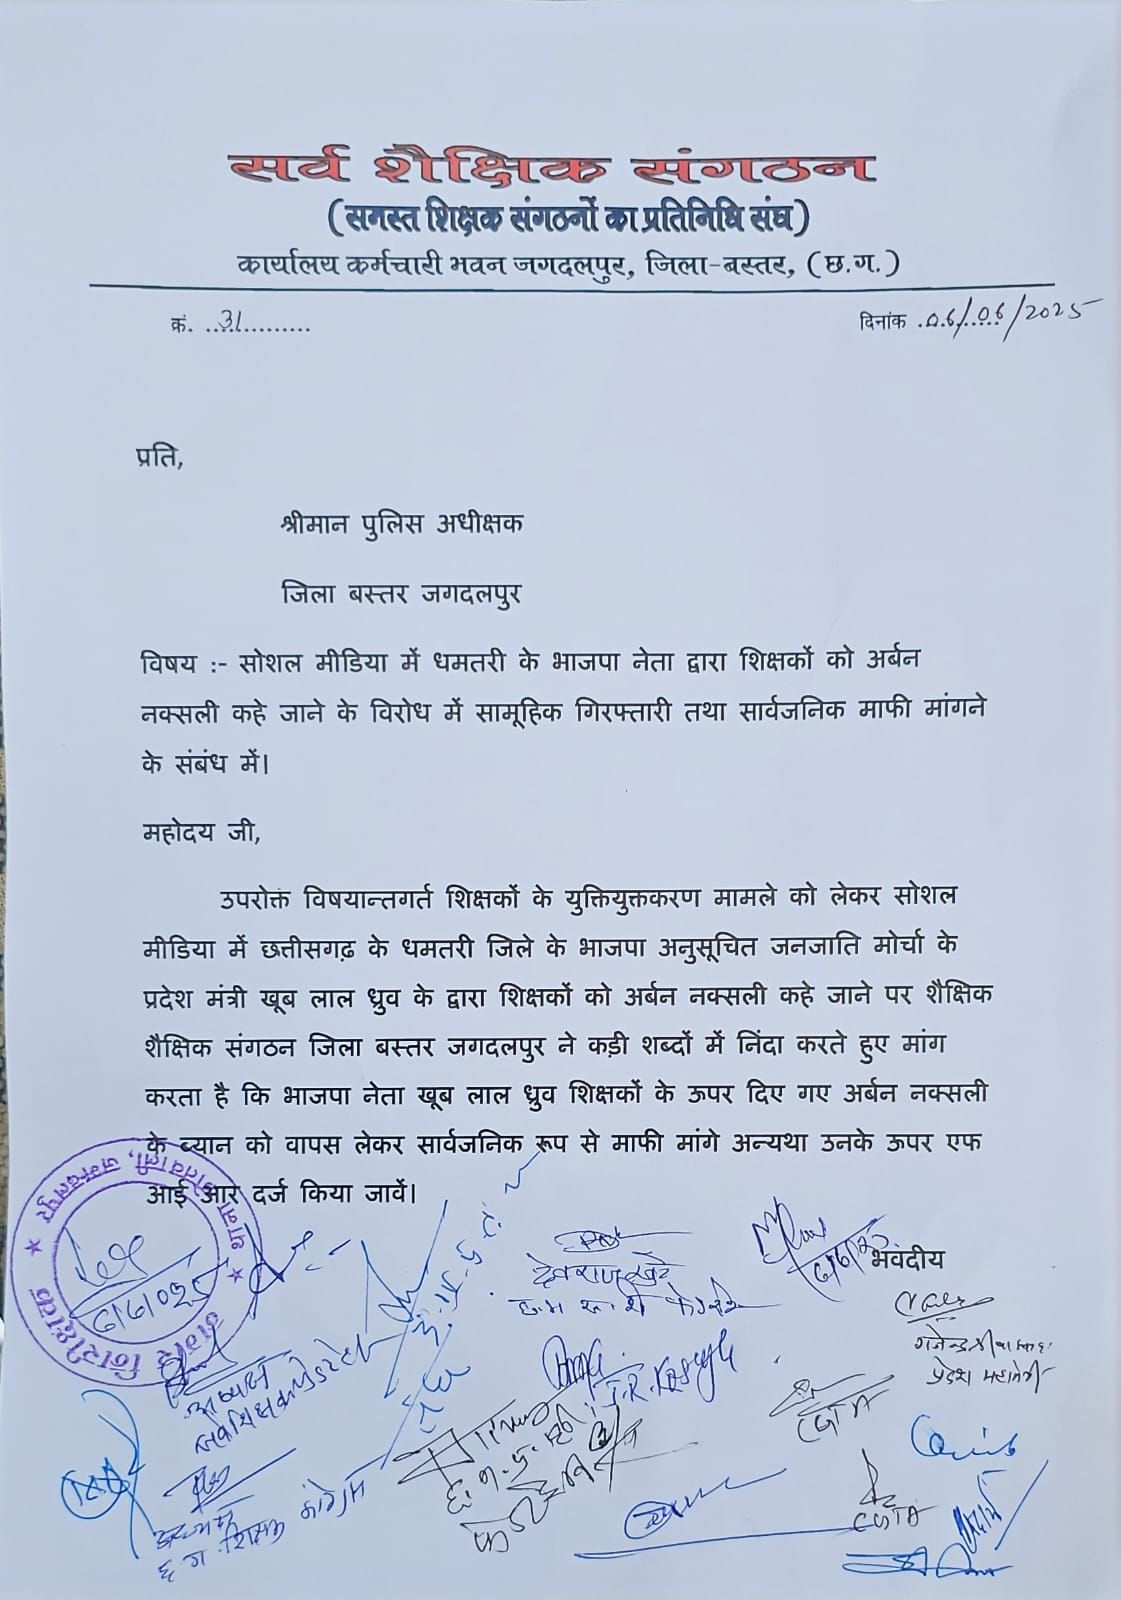 सर्व शैक्षिक संगठन
(समस्त शिक्षक संगठनों का प्रतिनिधि संघ)
कार्यालय कर्मचारी भवन जगदलपुर, जिला-बस्तर, (छ.ग.)
क्रं. ..31..........
दिनांक .06/06/2025
प्रति,
श्रीमान पुलिस अधीक्षक
जिला बस्तर जगदलपुर
विषय :- सोशल मीडिया में धमतरी के भाजपा नेता द्वारा शिक्षकों को अर्बन
नक्सली कहे जाने के विरोध में सामूहिक गिरफ्तारी तथा सार्वजनिक माफी मांगने
के संबंध में।
महोदय जी,
उपरोक्त विषयान्तगर्त शिक्षकों के युक्तियुक्तकरण मामले को लेकर सोशल
मीडिया में छत्तीसगढ़ के धमतरी जिले के भाजपा अनुसूचित जनजाति मोर्चा के
प्रदेश मंत्री खूब लाल ध्रुव के द्वारा शिक्षकों को अर्बन नक्सली कहे जाने पर शैक्षिक
शैक्षिक संगठन जिला बस्तर जगदलपुर ने कड़ी शब्दों में निंदा करते हुए मांग
करता है कि भाजपा नेता खूब लाल ध्रुव शिक्षकों के ऊपर दिए गए अर्बन नक्सली
के ब्यान को वापस लेकर सार्वजनिक रूप से माफी मांगे अन्यथा उनके ऊपर एफ
आई आर दर्ज किया जावें।
भवदीय
नगर निरीक्षक
थाना कोतवाली, जगदलपुर
देवराज खूंटे
प्रदेश महामंत्री
अध्यक्ष
CGTA